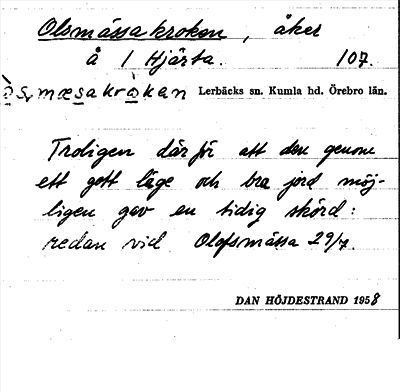 Olsmässakroken, åker
å 1 Hjärta. 107.
Lerbäcks sn. Kumla hd. Örebro län.
Troligen därför att den genom
ett gott läge och bra jord möj-
ligen gav en tidig skörd:
redan vid Olofsmässa 29/7.
DAN HÖJDESTRAND 1958